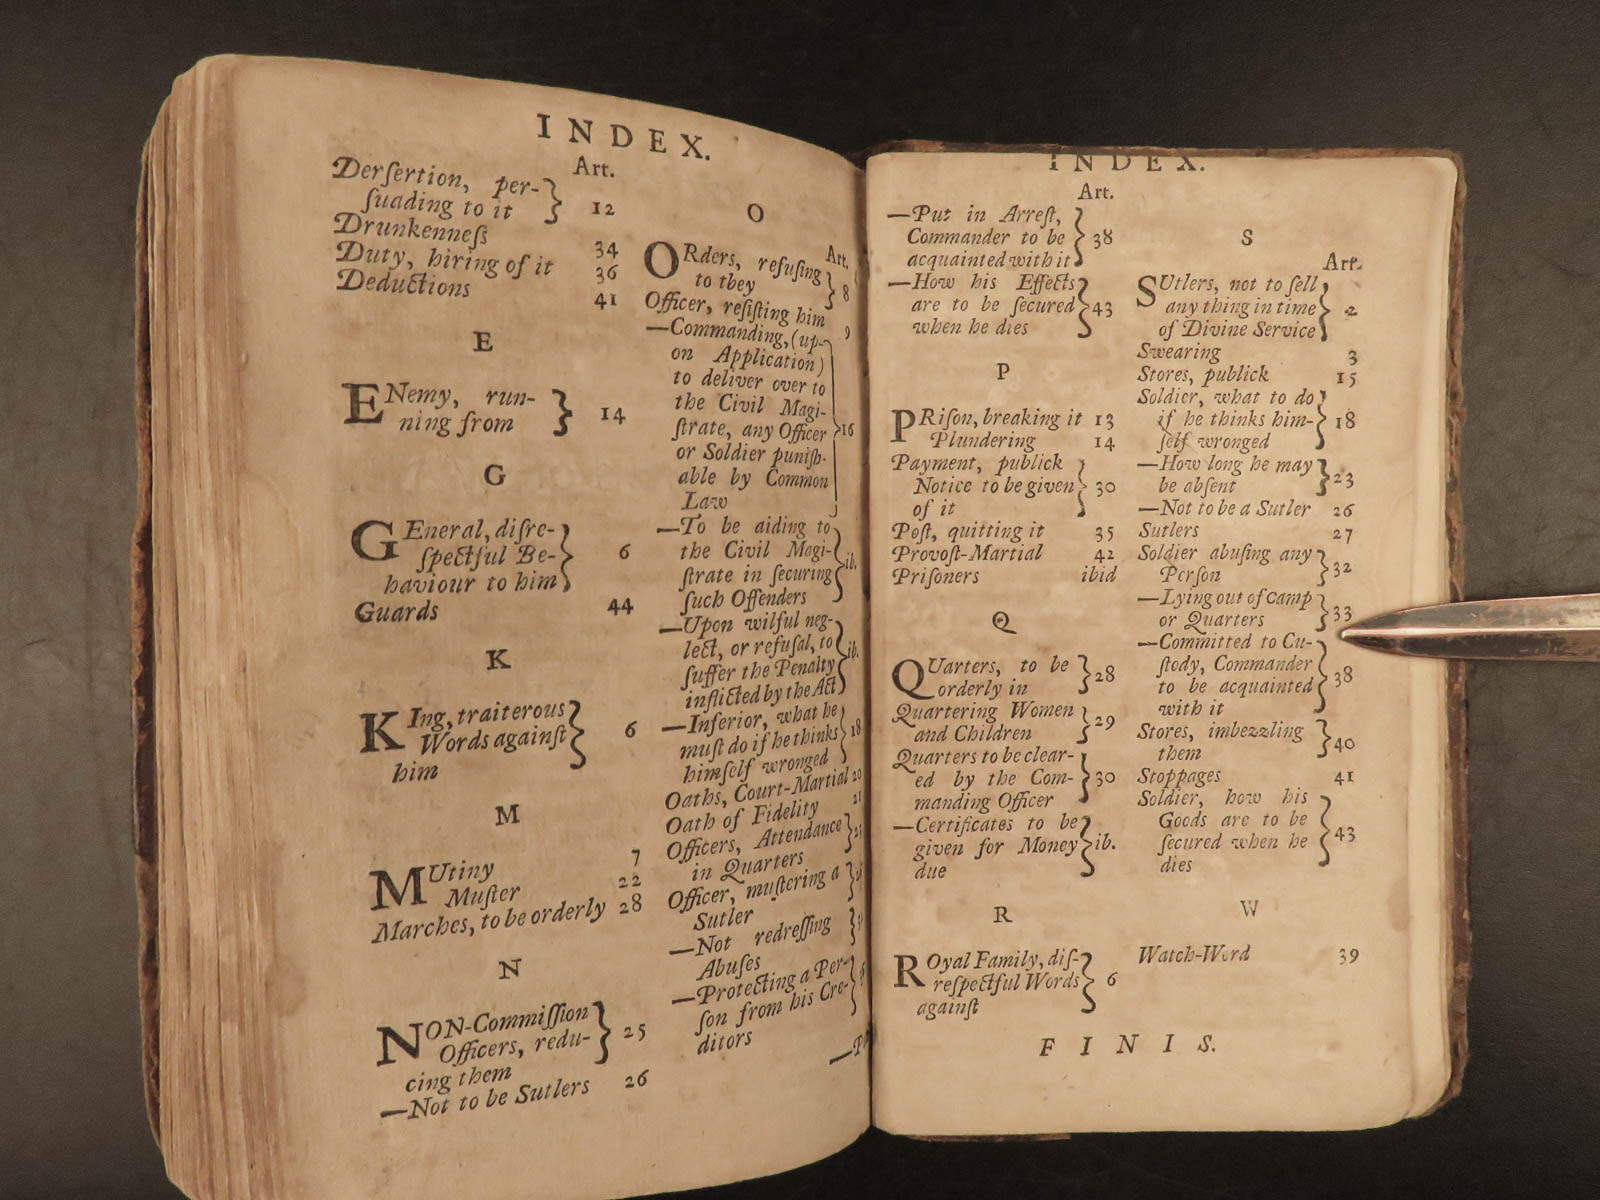 INDEX.
Art.
Derſertion, per-
ſuading to it } 12
Drunkenneſs 34
Duty, hiring of it 36
Deductions 41
E
ENemy, run-
ning from } 14
G
GEneral, diſre-
ſpectful Be- } 6
haviour to him
Guards 44
K
KIng, traiterous
Words againſt } 6
him
M
MUtiny 7
Muſter 22
Marches, to be orderly 28
N
NON-Commiſſion
Officers, redu- } 25
cing them
—Not to be Sutlers 26
O
Art.
ORders, refuſing
to tbey } 8
Officer, reſiſting him 9
—Commanding, (up-
on Application)
to deliver over to
the Civil Magi-
ſtrate, any Officer } 16
or Soldier puniſh-
able by Common
Law
—To be aiding to
the Civil Magi- } ib.
ſtrate in ſecuring
ſuch Offenders
—Upon wilful neg-
lect, or refuſal, to } ib.
ſuffer the Penalty
inflicted by the Act
—Inferior, what he
muſt do if he thinks } 18
himſelf wronged
Oaths, Court-Martial 20
Oath of Fidelity 21
Officers, Attendance
in Quarters }
Officer, muſtering a
Sutler }
—Not redreſſing
Abuſes }
—Protecting a Per-
ſon from his Cre- }
ditors
INDEX.
Art.
—Put in Arreſt,
Commander to be } 38
acquainted with it
—How his Effects
are to be ſecured } 43
when he dies
P
PRiſon, breaking it 13
Plundering 14
Payment, publick
Notice to be given } 30
of it
Poſt, quitting it 35
Provoſt-Martial 42
Priſoners ibid
Q
QUarters, to be
orderly in } 28
Quartering Women
and Children } 29
Quarters to be clear-
ed by the Com- } 30
manding Officer
—Certificates to be
given for Money } ib.
due
R
ROyal Family, diſ-
reſpectful Words } 6
againſt
S
Art.
SUtlers, not to ſell
any thing in time } 2
of Divine Service
Swearing 3
Stores, publick 15
Soldier, what to do
if he thinks him- } 18
ſelf wronged
—How long he may
be abſent } 23
—Not to be a Sutler 26
Sutlers 27
Soldier abuſing any
Perſon } 32
—Lying out of Camp
or Quarters } 33
—Committed to Cu-
ſtody, Commander
to be acquainted } 38
with it
Stores, imbezzling
them } 40
Stoppages 41
Soldier, how his
Goods are to be
ſecured when he } 43
dies
W
Watch-Word 39
FINIS.